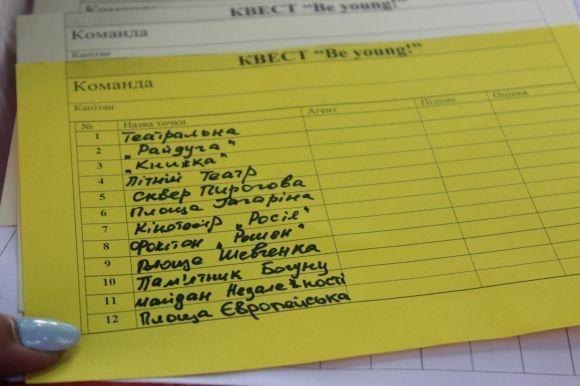 Команда
КВЕСТ "Be young!"
Команда
Капітан
КВЕСТ "Be young!"
Команда
Капітан
№ Назва точки Агент Підпис Оцінка
1 Театральна
2 „Райдуга"
3 „Книжка"
4 Літній Театр
5 Сквер Пирогова
6 Площа Гагаріна
7 Кінотеатр „Росія"
8 Фонтан „Рошен"
9 Площа Шевченка
10 Пам'ятник Богуну
11 Майдан Незалежності
12 Площа Європейська